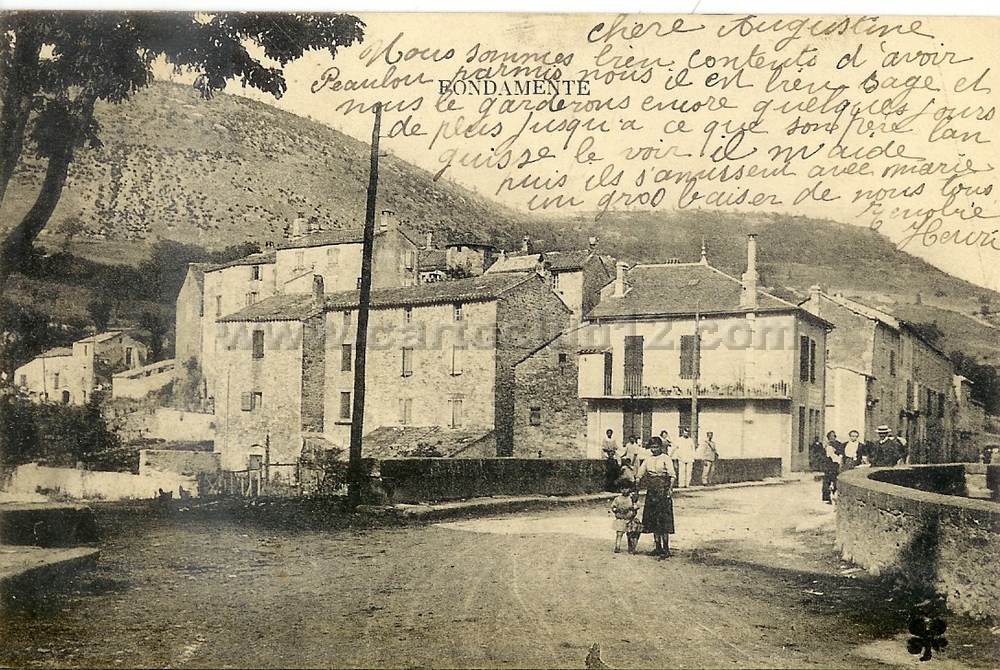 chere Augustine
Nous sommes bien contents d'avoir
Peaulou parmis nous il est bien sage et
FONDAMENTE
nous le garderons encore quelques jours
de plus jusqu'a ce que son père l'an
guisse le voir il m'aide
puis ils s'amusent avec marie
un gros baiser de nous tous
Zenobie
Henri
www.cartophil12.com